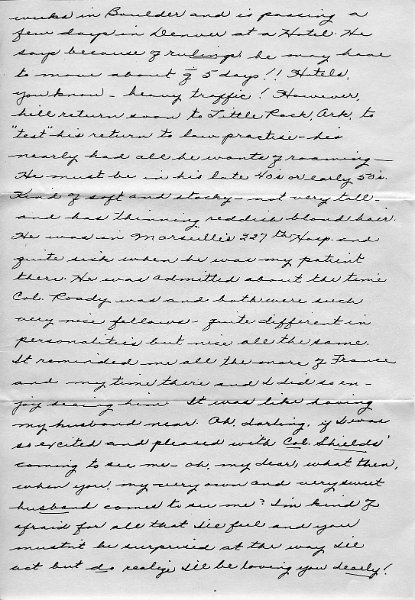 weeks in Boulder and is passing a
few days in Denver at a Hotel. He
says because of rulings he may have
to move about q 5 days!! Hotels,
you know - heavy traffic! However,
he'll return soon to Little Rock, Ark, to
"test" his return to law practise - he's
nearly had all he wants of roaming -
He must be in his late 40s or early 50s.
Kind of soft and stocky - not very tall -
and has thinning reddish blond hair.
He was in Marseille's 227th Hosp. and
quite sick when he was my patient
there. He was admitted about the time
Col. Roady was and both were such
very nice fellows - quite different in
personalities but nice all the same.
It reminded me all the more of France
and my time there and I did so en-
joy seeing him. It was like having
my husband near. Oh, darling, if I was
so excited and pleased with Col. Shields'
coming to see me - oh, my dear, what then,
when you, my very own and very sweet
husband comes to see me? I'm kind of
afraid for all that I'll feel and you
mustn't be surprised at the way I'll
act but do realize I'll be loving you dearly!